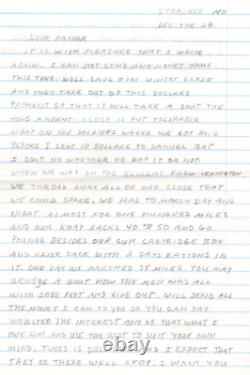 SYRACUSE MO
DEC THE 28
DEAR FATHER
IT IS WITH PLEASURE THAT I WRITE
AGAIN. I CAN NOT SEND ANY MONEY HOME
THIS TIME. WILL DRAW OUR WINTER CLOSE
AND THEY TAKE OUT OF THIS DOLLARS
PAYMENT SO THAT IT WILL TAKE A BOUT THE
HOLE AMOUNT. CLOSE IS PUT TOLERABLE
HIGHT ON THE SOLDIERS WHERE WE GOT PAID
BEFORE I SENT 10 DOLLARS TO SAMUEL BUT
I DONT NO WHETHER HE GOT IT OR NOT
WHEN WE WAS ON THE RETREAT FROM LEXINGTON
WE THROAD AWAY ALL OF OUR CLOSE THAT
WE COULD SPARE. WE HAD TO MARCH DAY AND
NIGHT. ALMOST FOR ONE HUNDRED MILES
AND OUR KNAP SACKS 40 TO 50 AND 60
POUNDS BESIDES OUR GUN CARTRIDGE BOX
AND HAVER SACK WITH 2 DAYS RATIONS IN
IT. ONE DAY WE MARCHED 35 MILES. YOU MAY
GRUDGE A BOUT HOW THE MEN WAS ALL
WITH SORE FEET AND GIVE OUT. WILL SEND ALL
THE MONEY I CAN TO YOU SO YOU CAN PAY
WEBSTER THE INTEREST AND OF THAT WHAT I
OWE HIM AND USE THE REST TO SUIT YOUR OWN
MIND. TIMES IS DULL AND I EXPECT THAT
THEY OR THERE WELL STOP. I WANT YOU